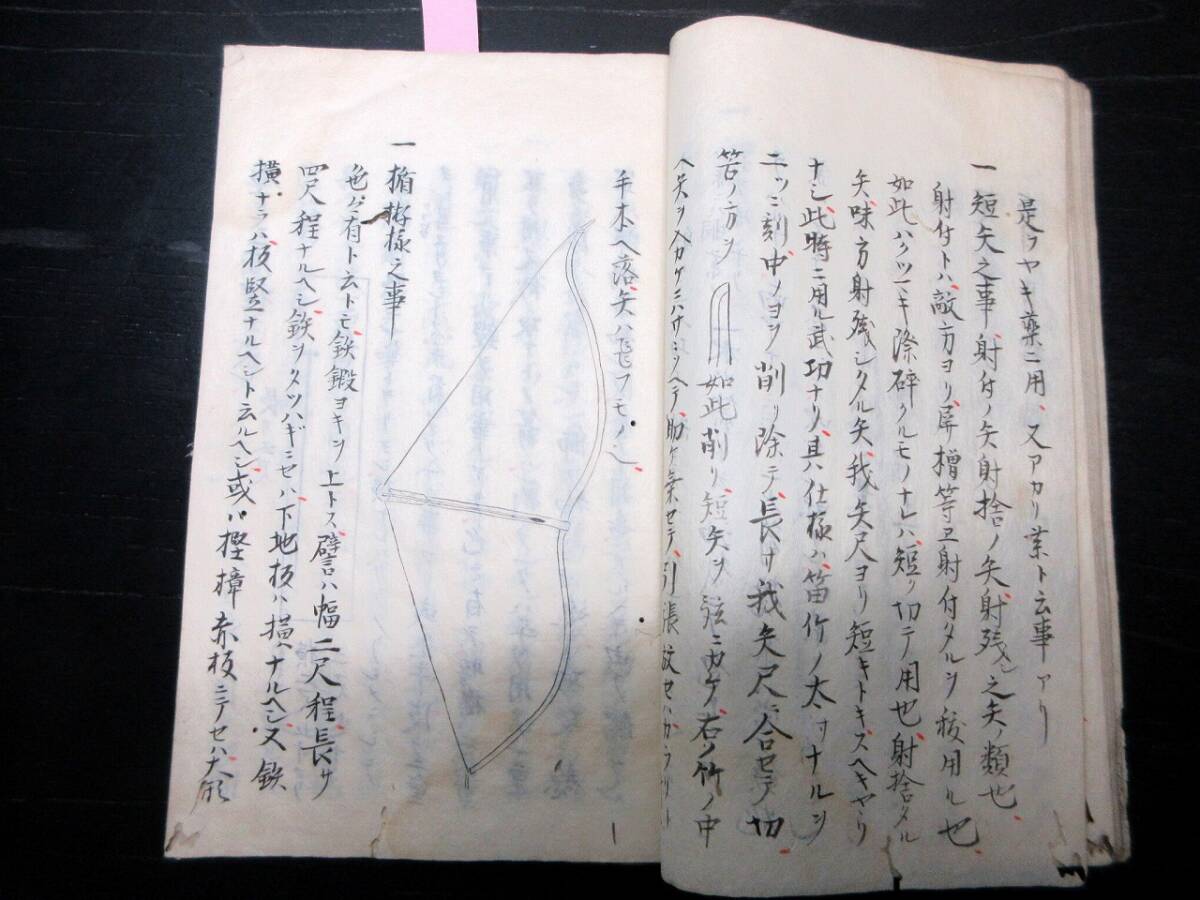 是ヲヤキ薬ニ用、又アカリ業ト云事アリ
一 短矢之事、射付ノ矢射捨ノ矢射残シ之矢ノ類也
射付トハ、敵方ヨリ屏櫓等ヱ射付タルヲ用ル也
如此ハクツーキ際碎クルモノナレハ、短ク切テ用也、射捨タル
矢、味方射残シタル矢、我矢尺ヨリ短キトキスヘキヤウ
ナシ、此時ニ用ル武功ナリ、其ハ仕様ハ笛竹ノ太サナルヲ
二ツニ割、中ノヨヲ削リ除テ、長サ我矢尺ニ合セテ切
筈ノ方ヲ 如此削リ、短矢ヲ弦ニカケ、右ノ竹ノ中
ヘ矢ヲ入カケ助ケ乗セテ、引張放セハ
手本ヘ落、矢ハ飛フモノ也
一 楯拵様之事
色々有ト云トモ、鉄鍛ヨキヲ上トス、譬ハ幅二尺程、長サ
四尺程ナルヘシ、鉄ヲタツハギニセハ、下地板ハ横ナルヘシ、又鉄
横ナラハ、板竪ナルヘシト云ルヘシ、或ハ樫樟赤板ニテセハ、大形